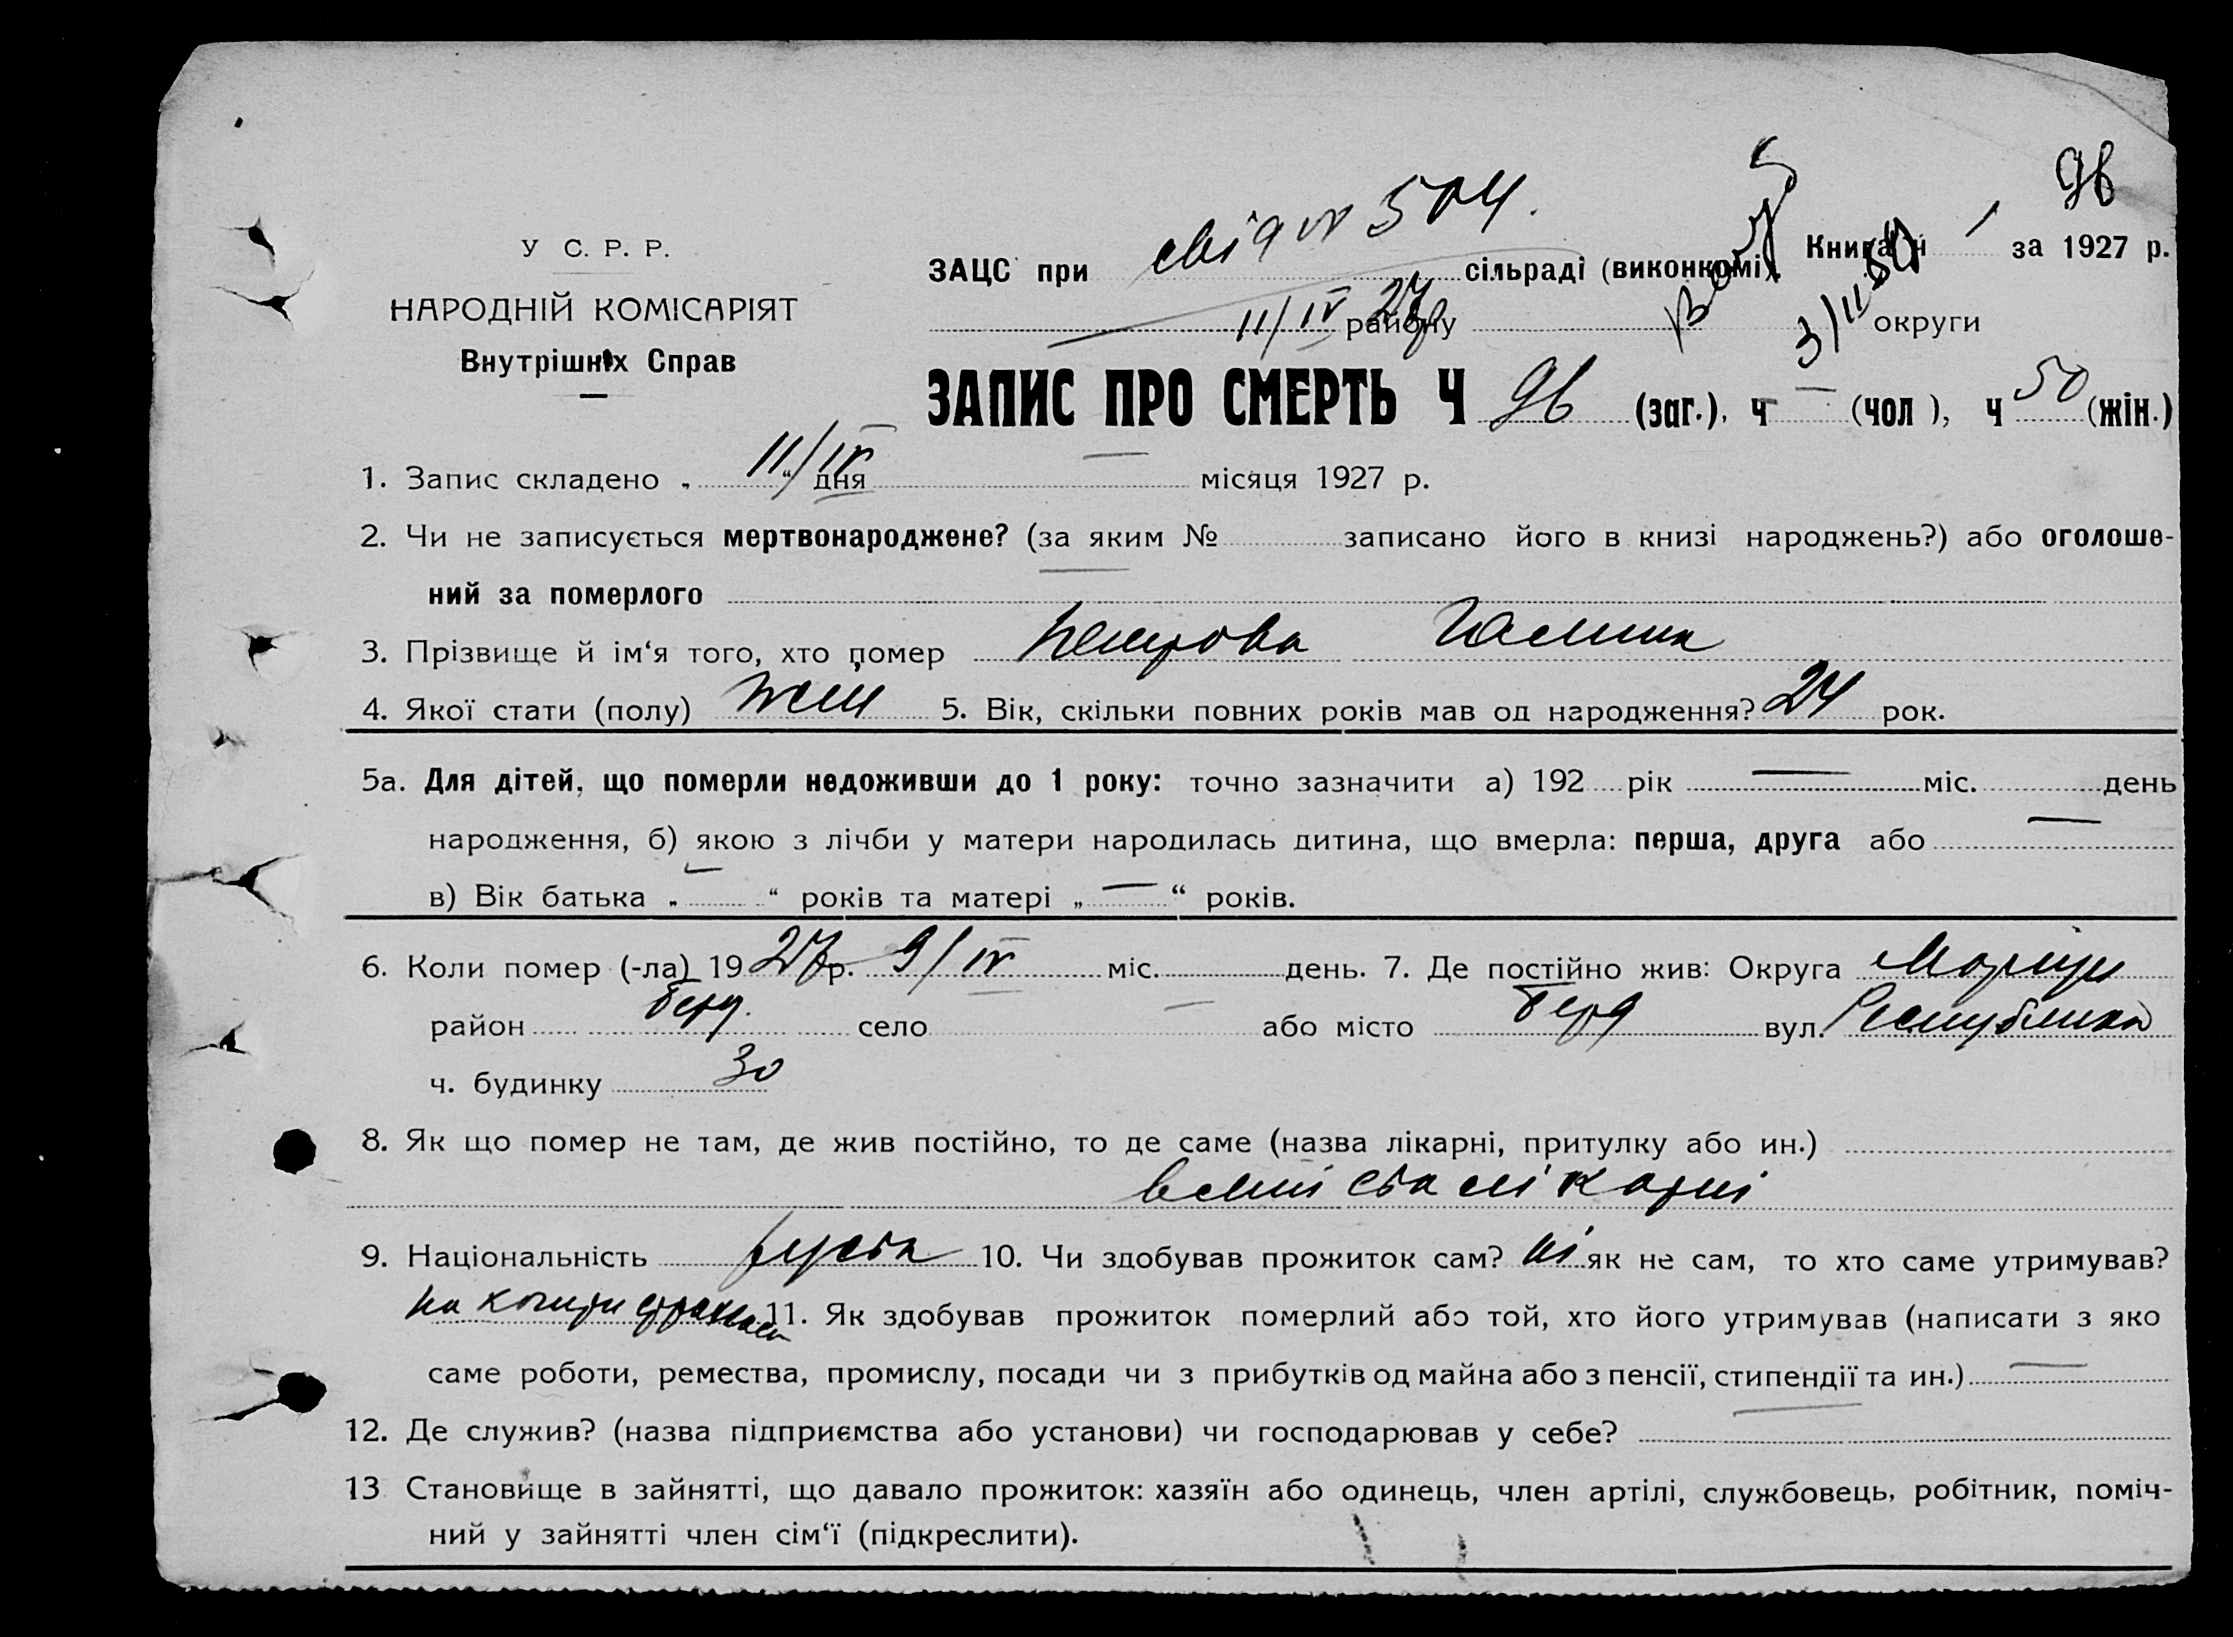 96
свід № 504.
У С. Р. Р.
НАРОДНІЙ КОМІСАРІЯТ
Внутрішніх Справ
ЗАЦС при сільраді (виконкомі). Книга ч 1 за 1927 р.
11/IV 27р району округи
ЗАПИС ПРО СМЕРТЬ Ч 96 (заг.), ч — (чол), ч 50 (жін.)
1. Запис складено „11/IV“ дня — місяця 1927 р.
2. Чи не записується мертвонароджене? (за яким № записано його в книзі народжень?) або оголоше-
ний за померлого —
3. Прізвище й ім‘я того, хто помер Петрова Галина
4. Якої стати (полу) жін 5. Вік, скільки повних років мав од народження? 24 рок.
5а. Для дітей, що померли недоживши до 1 року: точно зазначити а) 192 рік — міс. день
народження, б) якою з лічби у матери народилась дитина, що вмерла: перша, друга або —
в) Вік батька „ — “ років та матері „ — “ років.
6. Коли помер (-ла) 1927р. 9/IV міс. день. 7. Де постійно жив: Округа Маріуп
район Берд. село — або місто Берд вул. Республіка
ч. будинку 30
8. Як що помер не там, де жив постійно, то де саме (назва лікарні, притулку або ин.)
лікарні
9. Національність руська 10. Чи здобував прожиток сам? ні як не сам, то хто саме утримував?
на кошти 11. Як здобував прожиток померлий або той, хто його утримував (написати з яко
саме роботи, ремества, промислу, посади чи з прибутків од майна або з пенсії, стипендії та ин.) —
12. Де служив? (назва підприємства або установи) чи господарював у себе? —
13 Становище в зайнятті, що давало прожиток: хазяїн або одинець, член артілі, службовець, робітник, поміч-
ний у зайнятті член сім‘ї (підкреслити).